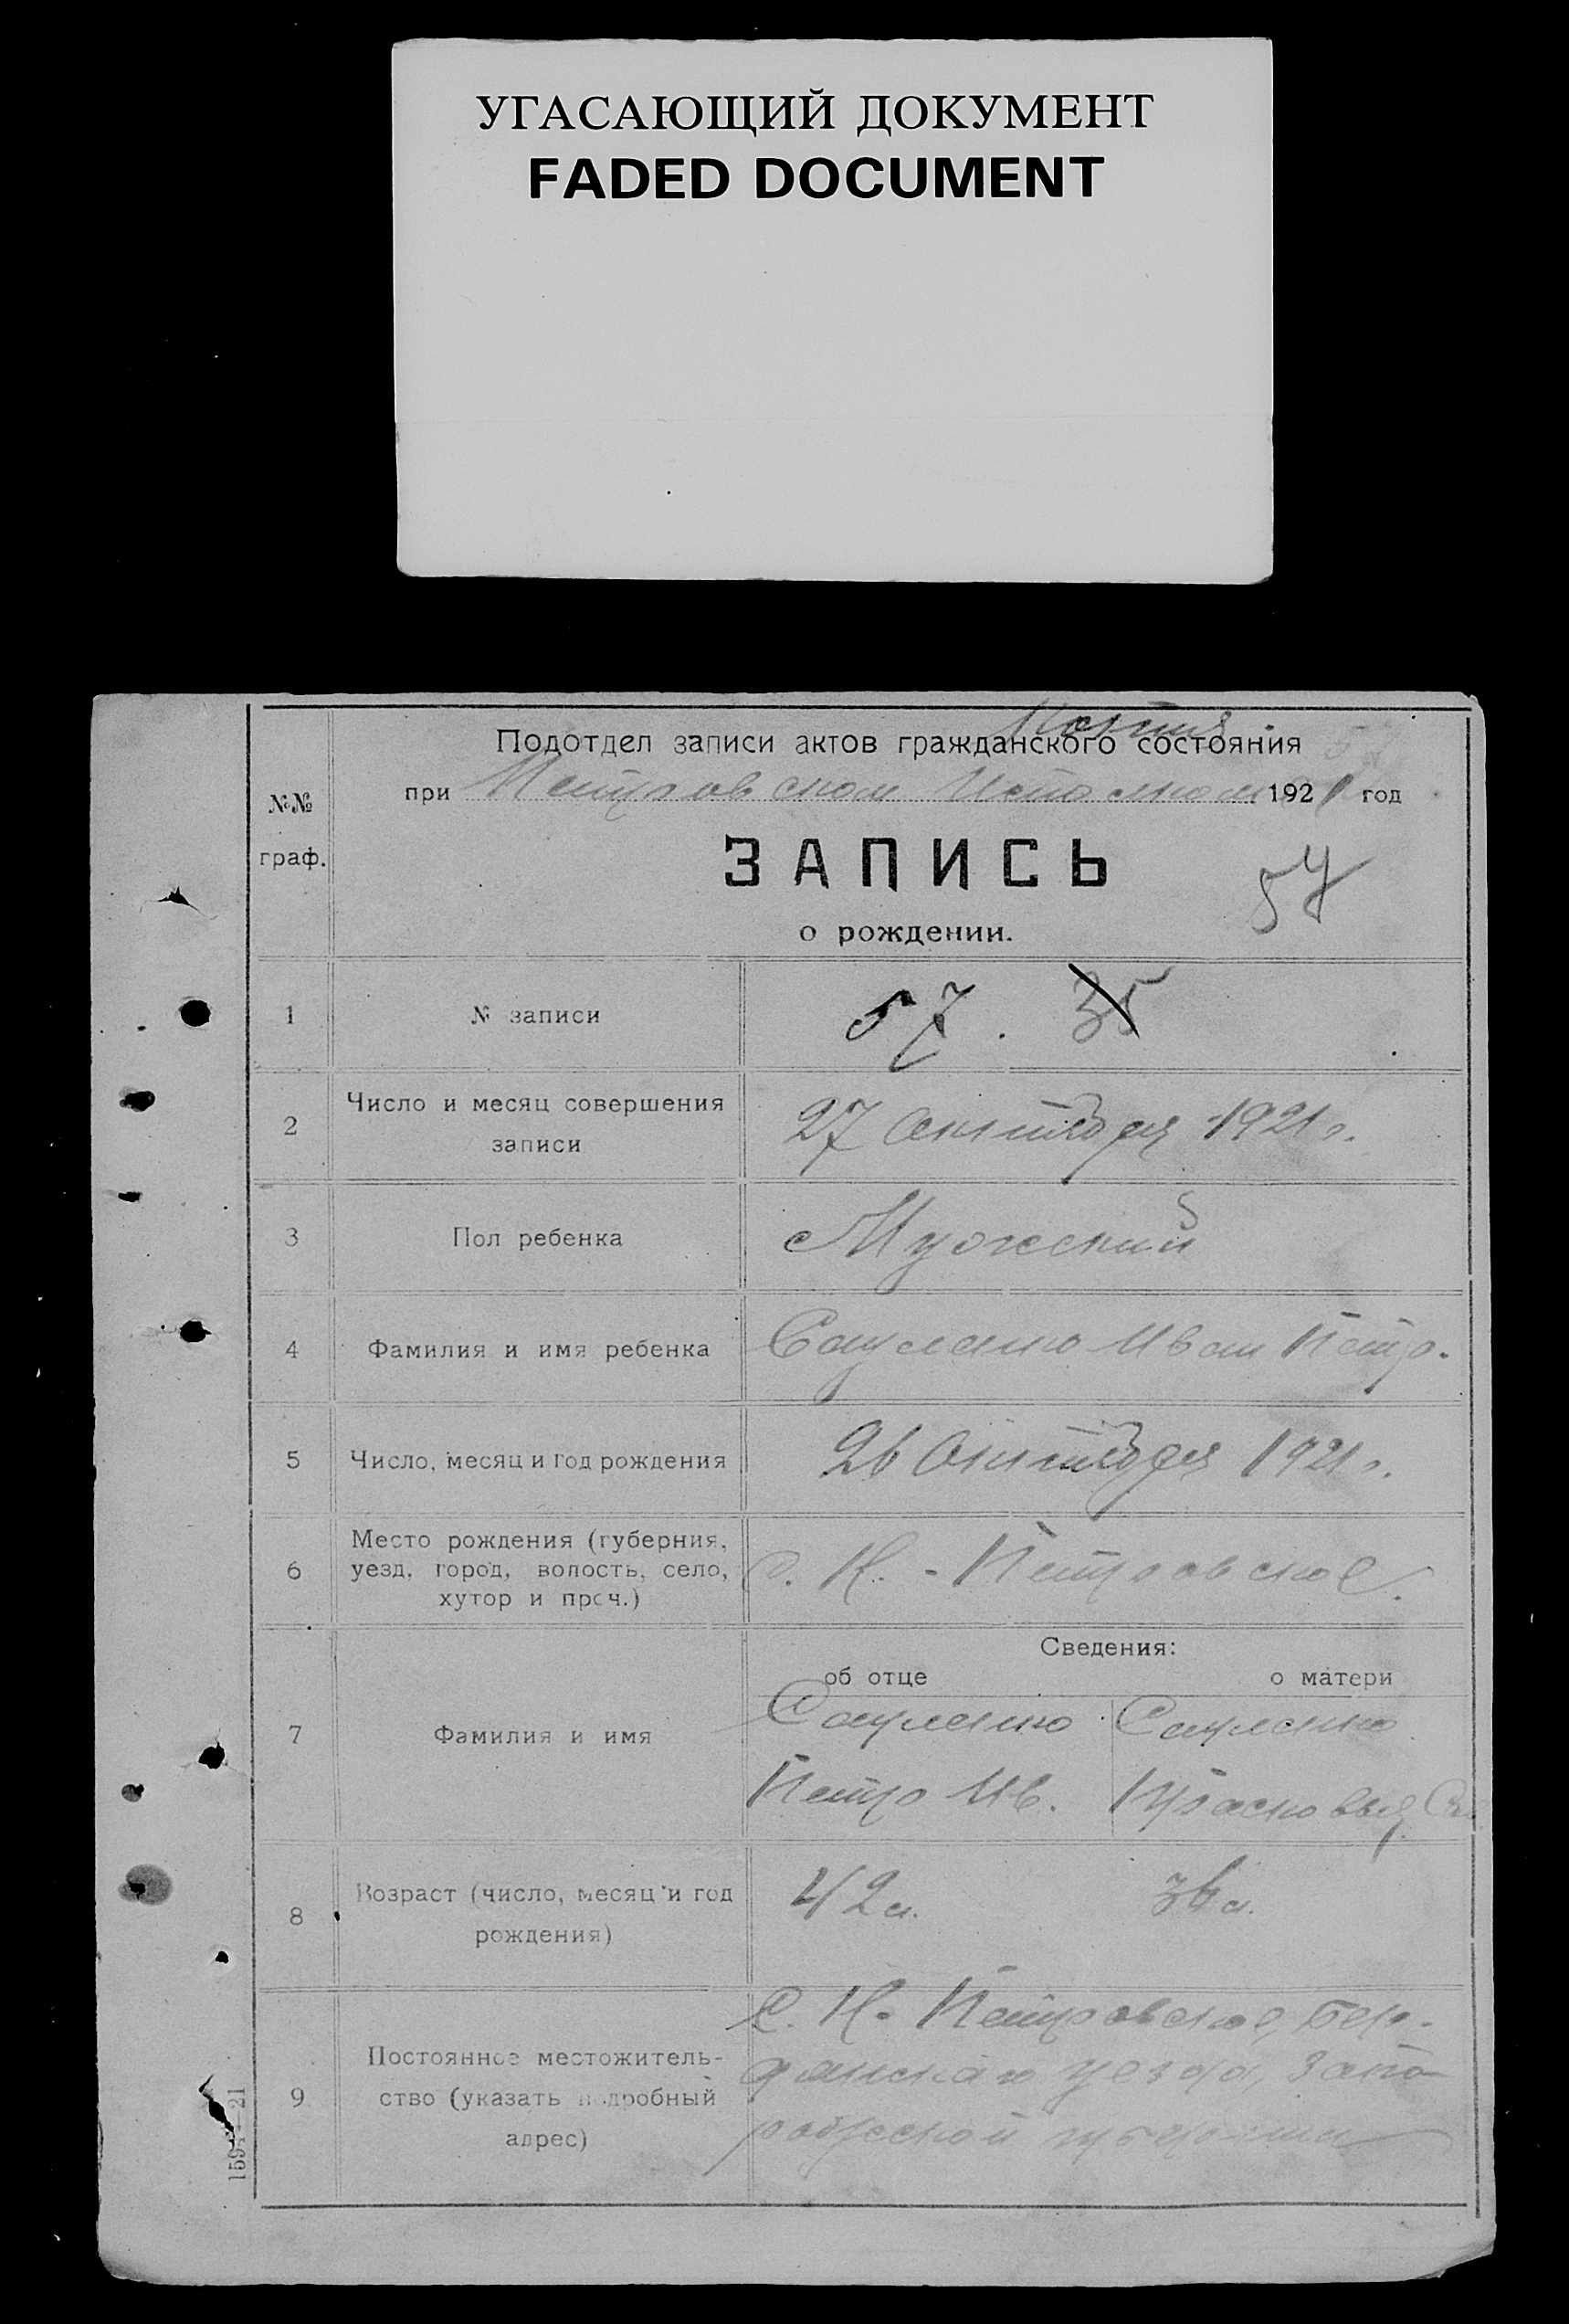 УГАСАЮЩИЙ ДОКУМЕНТ
FADED DOCUMENT
Копия
Подотдел записи актов гражданского состояния
при Петровском 1921 год
№№
граф.
ЗАПИСЬ
57
о рождении.
1 № записи 57. 35
2 Число и месяц совершения
записи
27 Октября 1921 г.
3 Пол ребенка Мужский
4 Фамилия и имя ребенка Иван Петр.
5 Число, месяц и год рождения 26 Октября 1921 г.
6 Место рождения (губерния,
уезд, город, волость, село,
хутор и проч.)
с. Н.-Петровское
Сведения:
об отце о матери
7 Фамилия и имя
Петр Ив. Прасковья
8 Возраст (число, месяц и год
рождения)
42 л. 36 л.
9 Постоянное местожитель-
ство (указать подробный
адрес)
С. Н. Петровское, Бер-
дянского уезда, Запо-
рожской губернии
159 - 21